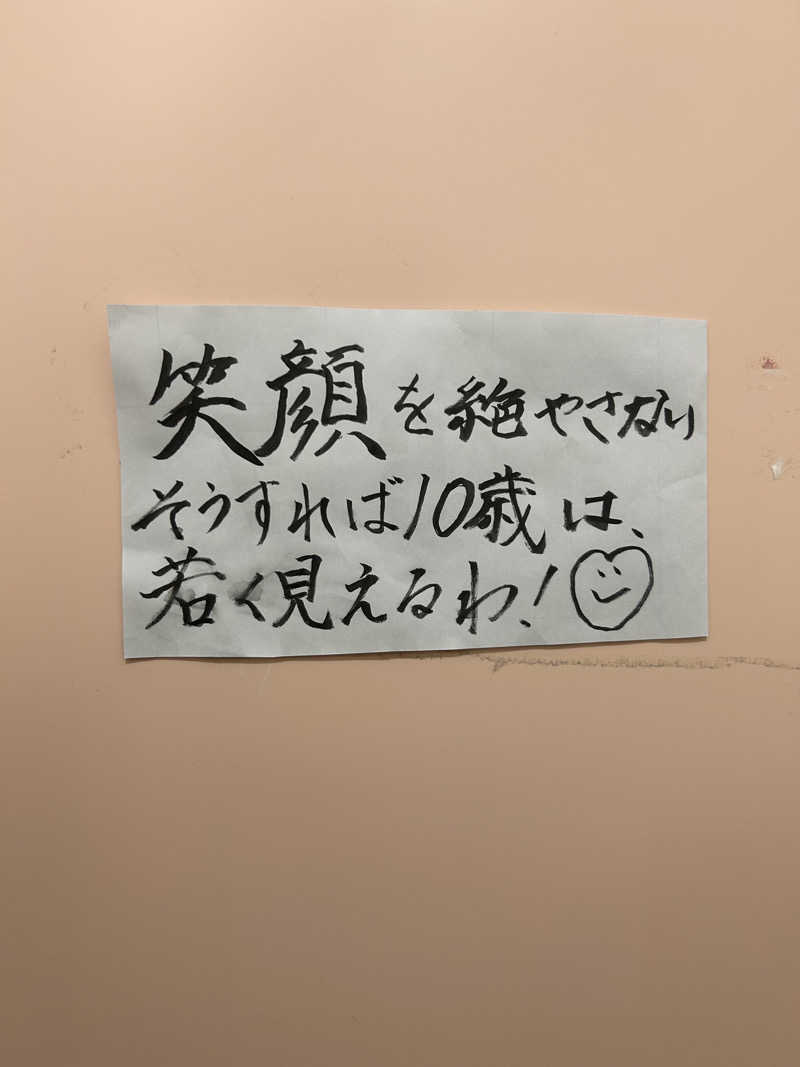 笑顔を絶やさない
そうすれば10歳は、
若く見えるわ!